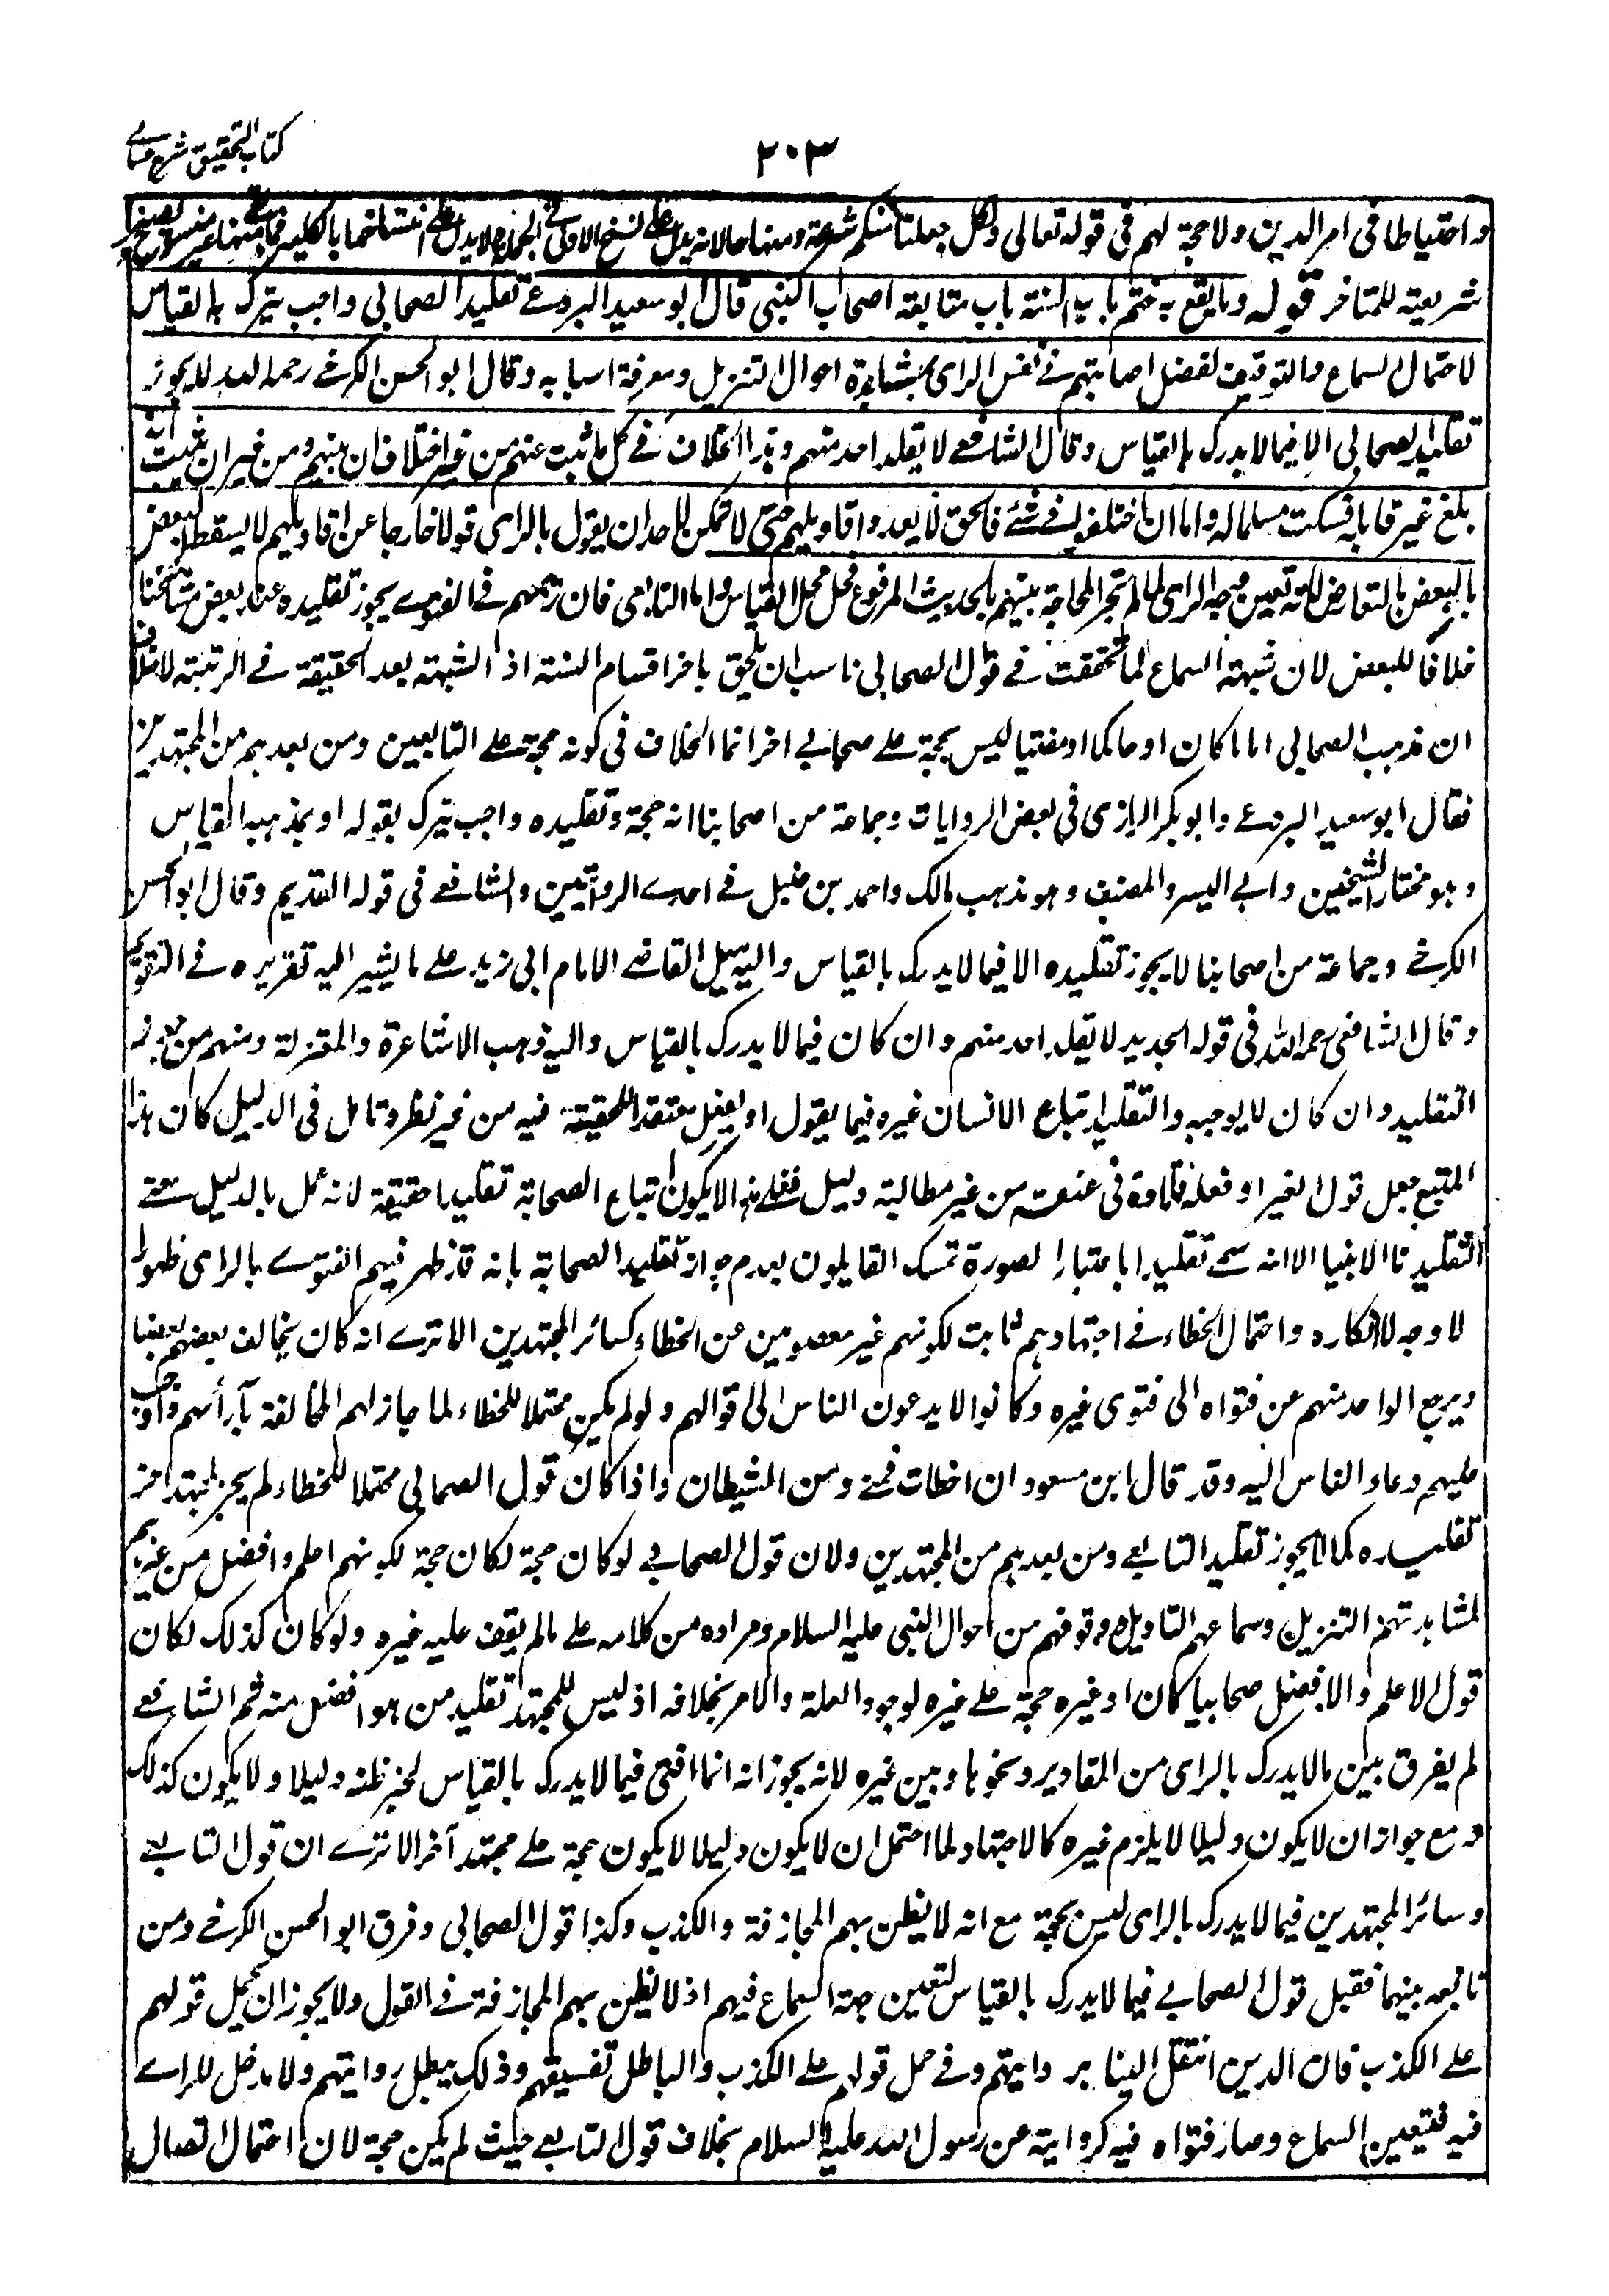 كتاب التحقيق شرح حسامي
٢٠٣
واحتياطا في امر الدين ولا حجة لهم في قوله تعالى ولكل جعلنا منكم شرعة ومنهاجا لانه يدل على نسخ الاول في الجملة ولا يدل على انتساخها بالكلية فما بقي منها غير منسوخ يصير
شريعته للمتاخر قوله وما يقع به ختم باب السنة باب متابعة اصحاب النبي قال ابو سعيد البردعي تقليد الصحابي واجب يترك به القياس
لاحتمال السماع والتوقيف لفضل اصابتهم في نفس الراي بمشاهدة احوال التنزيل ومعرفة اسبابه وقال ابو الحسن الكرخي رحمه الله لا يجوز
تقليد الصحابي الا فيما لا يدرك بالقياس وقال الشافعي لا يقلد احد منهم وهذا الخلاف في كل ما ثبت عنهم من غير اختلاف بينهم ومن غير ان يثبت انه
بلغ غير قايله فسكت مسلما له واما ان اختلفوا في شئ فالحق لا يعدو اقاويلهم حتى لا تمكن لاحد ان يقول بالراي قولا خارجا عن اقاويلهم لا يسقط البعض
بالبعض بالتعارض لانه تعين وجه الراي لما لم تجر المحاجة بينهم بالحديث المرفوع فحل محل القياس واما التابعي فان زاحمهم في الفتوى يجوز تقليده عند بعض مشائخنا
خلافا للبعض لان شبهة السماع لما تحققت في قول الصحابي ناسب ان يلحق باخر اقسام السنة اذ الشبهة بعد الحقيقة في الرتبة لا خلاف
ان مذهب الصحابي اماما كان او حاكما او مفتيا ليس بحجة على صحابي اخر انما الخلاف في كونه حجة على التابعين ومن بعدهم من المجتهدين
فقال ابو سعيد البردعي وابو بكر الرازي في بعض الروايات وجماعة من اصحابنا انه حجة وتقليده واجب يترك بقوله او بمذهبه القياس
وهو مختار الشيخين وابي اليسر والمصنف وهو مذهب مالك واحمد بن حنبل في احدى الروايتين والشافعي في قوله القديم وقال ابو الحسن
الكرخي وجماعة من اصحابنا لا يجوز تقليده الا فيما لا يدرك بالقياس واليه يميل القاضي الامام ابي زيد على ما يشير اليه تقريره في التقويم
وقال الشافعي رحمه الله في قوله الجديد لا يقلد احد منهم وان كان فيما لا يدرك بالقياس واليه ذهب الاشاعرة والمعتزلة ومنهم من جوز
التقليد وان كان لا يوجبه والتقليد اتباع الانسان غيره فيما يقول او يفعل معتقدا للحقيقة فيه من غير نظر وتامل في الدليل كان هذا
المتبع جعل قول الغير او فعله قلادة في عنقه من غير مطالبة دليل فعلى هذا لا يكون اتباع الصحابة تقليدا حقيقة لانه عمل بالدليل معنى
التقليد الا انه سمي تقليدا باعتبار الصورة تمسك القايلون بعدم جواز تقليد الصحابة بانه قد ظهر فيهم الفتوى بالراي ظهورا
لا وجه لانكاره واحتمال الخطاء في اجتهادهم ثابت لكونهم غير معصومين عن الخطاء كسائر المجتهدين الا ترى انه كان يخالف بعضهم بعضا
ويرجع الواحد منهم عن فتواه الى فتوى غيره وكانوا لا يدعون الناس الى اقوالهم ولو لم يكن محتملا للخطاء لما جاز لهم المخالفة بآرائهم ووجب
عليهم دعاء الناس اليه وقد قال ابن مسعود ان اخطات فمنى ومن الشيطان واذا كان قول الصحابي محتملا للخطاء لم يجز لمجتهد اخر
تقليده كما لا يجوز تقليد التابعي ومن بعدهم من المجتهدين ولان قول الصحابي لو كان حجة لكان حجة لكونهم اعلم وافضل من غيرهم
لمشاهدتهم التنزيل وسماعهم التاويل ووقوفهم من احوال النبي عليه السلام ومراده من كلامه على ما لم يقف عليه غيره ولو كان كذلك لكان
قول الاعلم والافضل صحابيا كان او غيره حجة على غيره لوجود العلة والامر بخلافه اذ ليس للمجتهد تقليد من هو افضل منه ثم الشافعي
لم يفرق بين ما لا يدرك بالراى من المقادير ونحوها وبين غيره لانه يجوز انه انما افتى فيما لا يدرك بالقياس لخبر ظنه دليلا ولا يكون كذلك
ومع جواز ان لا يكون دليلا لا يلزم غيره كالاجتهاد لما احتمل ان لا يكون دليلا لا يكون حجة على مجتهد آخر الا ترى ان قول التابعي
وسائر المجتهدين فيما لا يدرك بالراى ليس بحجة مع انه لا يظن بهم المجازفة والكذب وكذا قول الصحابي وفرق ابو الحسن الكرخي ومن
تابعه بينهما فقبل قول الصحابي فيما لا يدرك بالقياس لتعين جهة السماع فيهم اذ لا يظن بهم المجازفة في القول ولا يجوز ان يحمل قولهم
على الكذب فان الدين انتقل الينا بروايتهم وفي حمل قولهم على الكذب والباطل تفسيقهم وذلك يبطل روايتهم ولا مدخل للراى
فيه فتعين السماع وصار فتواه فيه كروايته عن رسول الله عليه السلام بخلاف قول التابعي حيث لم يكن حجة لان احتمال اتصال